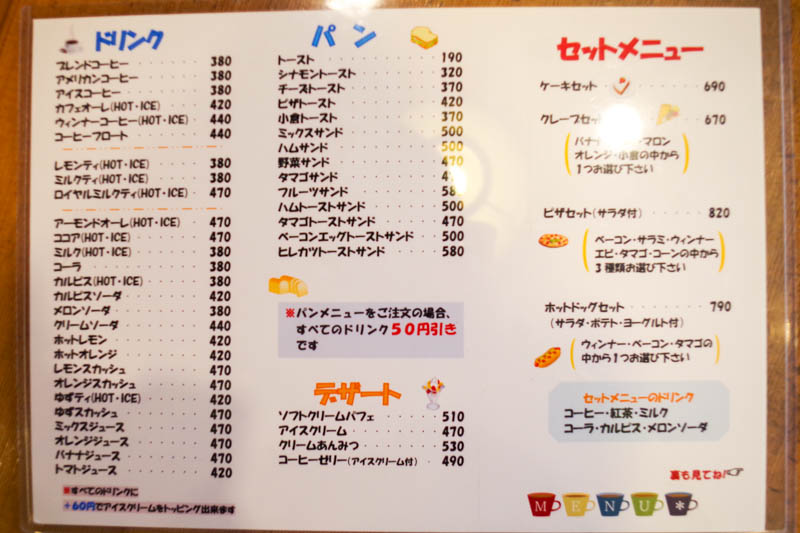 ドリンク
ブレンドコーヒー 380
アメリカンコーヒー 380
アイスコーヒー 380
カフェオーレ(HOT・ICE) 420
ウィンナーコーヒー(HOT・ICE) 440
コーヒーフロート 440
レモンティ(HOT・ICE) 380
ミルクティ(HOT・ICE) 380
ロイヤルミルクティ(HOT・ICE) 470
アーモンドオーレ(HOT・ICE) 470
ココア(HOT・ICE) 470
ミルク(HOT・ICE) 380
コーラ 380
カルピス(HOT・ICE) 380
カルピスソーダ 420
メロンソーダ 380
クリームソーダ 440
ホットレモン 420
ホットオレンジ 420
レモンスカッシュ 470
オレンジスカッシュ 470
ゆずティ(HOT・ICE) 420
ゆずスカッシュ 470
ミックスジュース 470
オレンジジュース 470
バナナジュース 470
トマトジュース 420
※すべてのドリンクに
+60円でアイスクリームをトッピング出来ます
パン
トースト 190
シナモントースト 320
チーズトースト 370
ピザトースト 420
小倉トースト 370
ミックスサンド 500
ハムサンド 500
野菜サンド 470
タマゴサンド 470
フルーツサンド 58
ハムトーストサンド 500
タマゴトーストサンド 470
ベーコンエッグトーストサンド 500
ヒレカツトーストサンド 580
※パンメニューをご注文の場合、
すべてのドリンク50円引き
です
デザート
ソフトクリームパフェ 510
アイスクリーム 470
クリームあんみつ 530
コーヒーゼリー(アイスクリーム付) 490
セットメニュー
ケーキセット 690
クレープセット 670
バナナ・マロン
オレンジ・小倉の中から
1つお選び下さい
ピザセット(サラダ付) 820
ベーコン・サラミ・ウィンナー
エビ・タマゴ・コーンの中から
3種類お選び下さい
ホットドッグセット 790
(サラダ・ポテト・ヨーグルト付)
ウィンナー・ベーコン・タマゴの
中から1つお選び下さい
セットメニューのドリンク
コーヒー・紅茶・ミルク
コーラ・カルピス・メロンソーダ
裏も見てね!
MENU*